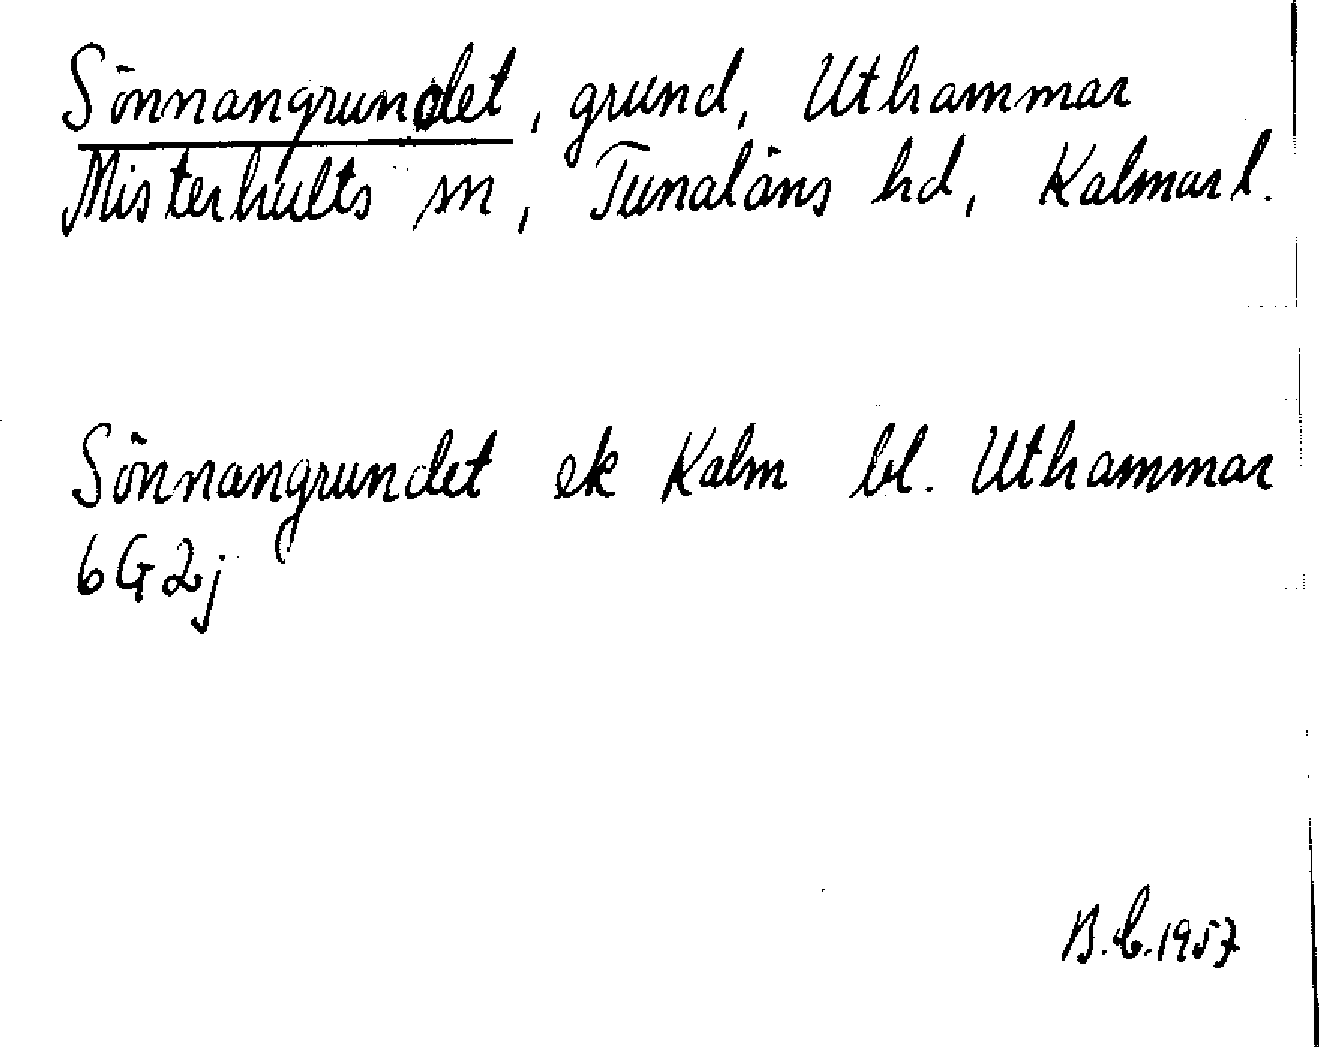 Sönnangrundet, grund, Uthammar
Misterhults sn, Tunaläns hd, Kalmar l.
Sönnangrundet ek Kalm bl. Uthammar
6G2j
B.C.1957